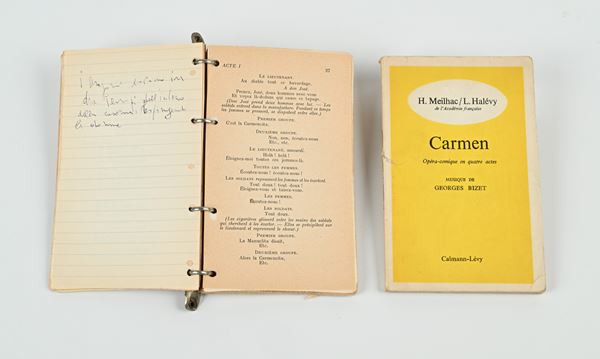 i
ACTE I 27
LE LIEUTENANT.
Au diable tout ce bavardage.
A don José.
Prenez, José, deux hommes avec vous
Et voyez là-dedans qui cause ce tapage.
(Don José prend deux hommes avec lui. — Les
soldats entrent dans la manufacture. Pendant ce temps
les femmes se pressent, se disputent entre elles.)
PREMIER GROUPE.
C'est la Carmencita.
DEUXIÈME GROUPE.
Non, non, écoutez-nous
Etc., etc.
LE LIEUTENANT, assourdi.
Holà ! holà !
Éloignez-moi toutes ces femmes-là.
TOUTES LES FEMMES.
Écoutez-nous ! écoutez-nous !
LES SOLDATS repoussent les femmes et les écartent.
Tout doux ! tout doux !
Éloignez-vous et taisez-vous.
LES FEMMES.
Écoutez-nous !
LES SOLDATS.
Tout doux.
(Les cigarières glissent entre les mains des soldats
qui cherchent à les écarter. — Elles se précipitent sur
le lieutenant et reprennent le chœur.)
PREMIER GROUPE.
La Manuelita disait,
Etc.
DEUXIÈME GROUPE.
Alors la Carmencita,
Etc.
H. Meilhac/L. Halévy
de l'Académie française
Carmen
Opéra-comique en quatre actes
MUSIQUE DE
GEORGES BIZET
Calmann-Lévy